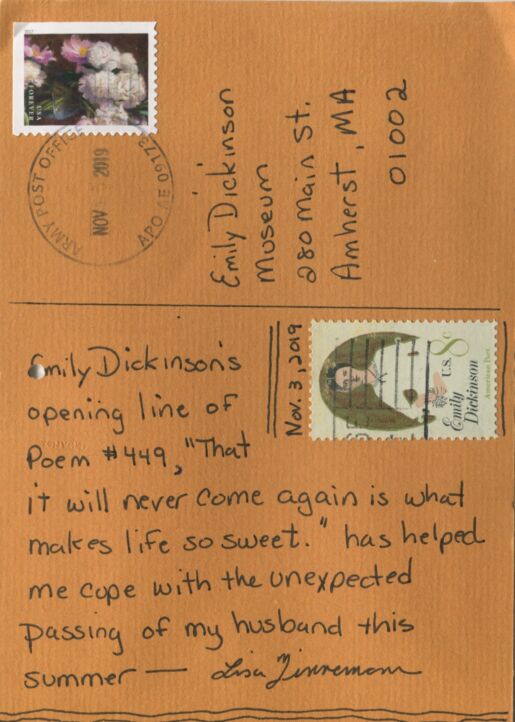 FOREVER
USA
ARMY POST OFFICE
NOV 2019
APO AE 09173
Emily Dickinson
Museum
280 Main St.
Amherst, MA
01002
Nov. 3, 2019
U.S. 8c
Emily
Dickinson
American Poet
Emily Dickinson's
opening line of
Poem #449, "That
it will never come again is what
makes life so sweet." has helped
me cope with the unexpected
passing of my husband this
summer — Lisa